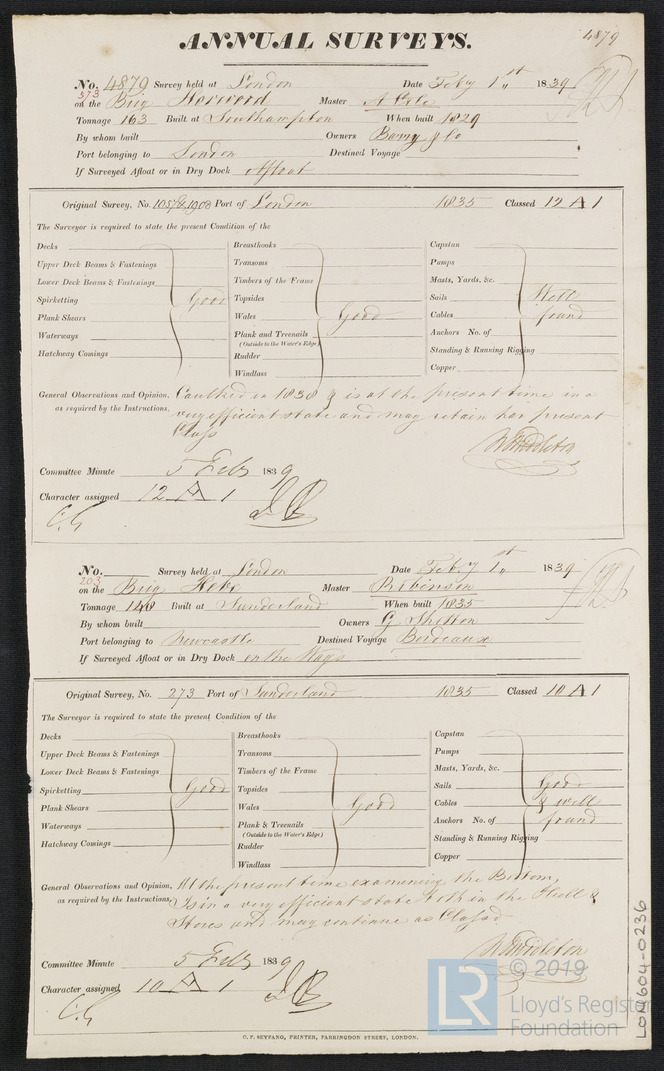 4879
ANNUAL SURVEYS.
No. 4879 Survey held at London Date Feby 1st 1839
573
on the Brig Harwood Master
Tonnage 163 Built at Southampton When built 1829
By whom built Owners Barry & Co
Port belonging to London Destined Voyage
If Surveyed Afloat or in Dry Dock Afloat
Original Survey, No. Port of London 1835 Classed 12 A 1
The Surveyor is required to state the present Condition of the
Decks Breasthooks Capstan
Upper Deck Beams & Fastenings Transoms Pumps
Lower Deck Beams & Fastenings Timbers of the Frame Masts, Yards, &c.
Spirketting Good Topsides Sails Well
Plank Shears Wales Good Cables found
Waterways Plank and Treenails Anchors No. of
(Outside to the Water's Edge)
Hatchway Comings Rudder Standing & Running Rigging
Windlass Copper
General Observations and Opinion, Caulked in 1838 & is at the present time in a
as required by the Instructions. very efficient state and may retain her present
Class
Middleton
Committee Minute 5 Feby 1839
Character assigned 12 A 1
No. Survey held at London Date Feby 1st 1839
203
on the Brig Hebe Master Robinson
Tonnage 148 Built at Sunderland When built 1835
By whom built Owners G. Shotton
Port belonging to Newcastle Destined Voyage Bordeaux
If Surveyed Afloat or in Dry Dock on the Ways
Original Survey, No. 273 Port of Sunderland 1835 Classed 10 A 1
The Surveyor is required to state the present Condition of the
Decks Breasthooks Capstan
Upper Deck Beams & Fastenings Transoms Pumps
Lower Deck Beams & Fastenings Timbers of the Frame Masts, Yards, &c.
Spirketting Good Topsides Sails Good
Plank Shears Wales Good Cables & well
Waterways Plank & Treenails Anchors No. of found
(Outside to the Water's Edge)
Hatchway Comings Rudder Standing & Running Rigging
Windlass Copper
General Observations and Opinion, At the present time examining the Bottom,
as required by the Instructions. Is in a very efficient state both in the Hull &
Stores and may continue as Classed
Middleton
Committee Minute 5 Feby 1839
Character assigned 10 A 1
C. F. SEYFANG, PRINTER, FARRINGDON STREET, LONDON.
LR © 2019
Lloyd's Register
Foundation
LON604-0236